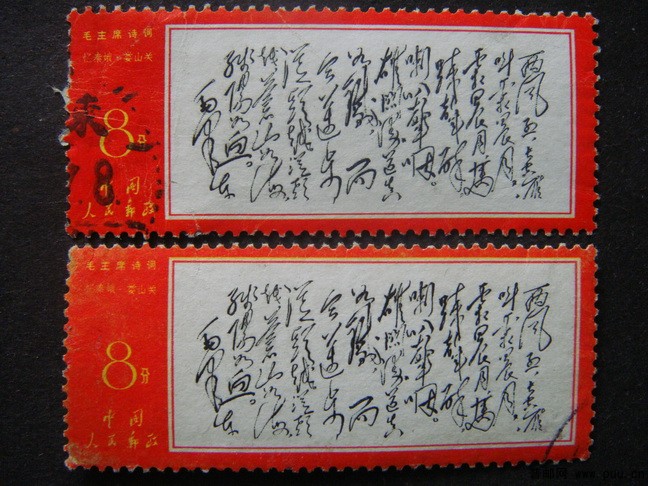 毛主席诗词
忆秦娥·娄山关
8分
中国
人民邮政
西风烈,长空雁
叫霜晨月。
霜晨月,马
蹄声碎,
喇叭声咽。
雄关漫道真
如铁,而
今迈步
从头越,从头
越,苍山如海,
残阳如血。
毛泽东
8
毛主席诗词
忆秦娥·娄山关
8分
中国
人民邮政
西风烈,长空雁
叫霜晨月。
霜晨月,马
蹄声碎,
喇叭声咽。
雄关漫道真
如铁,而
今迈步
从头越,从头
越,苍山如海,
残阳如血。
毛泽东